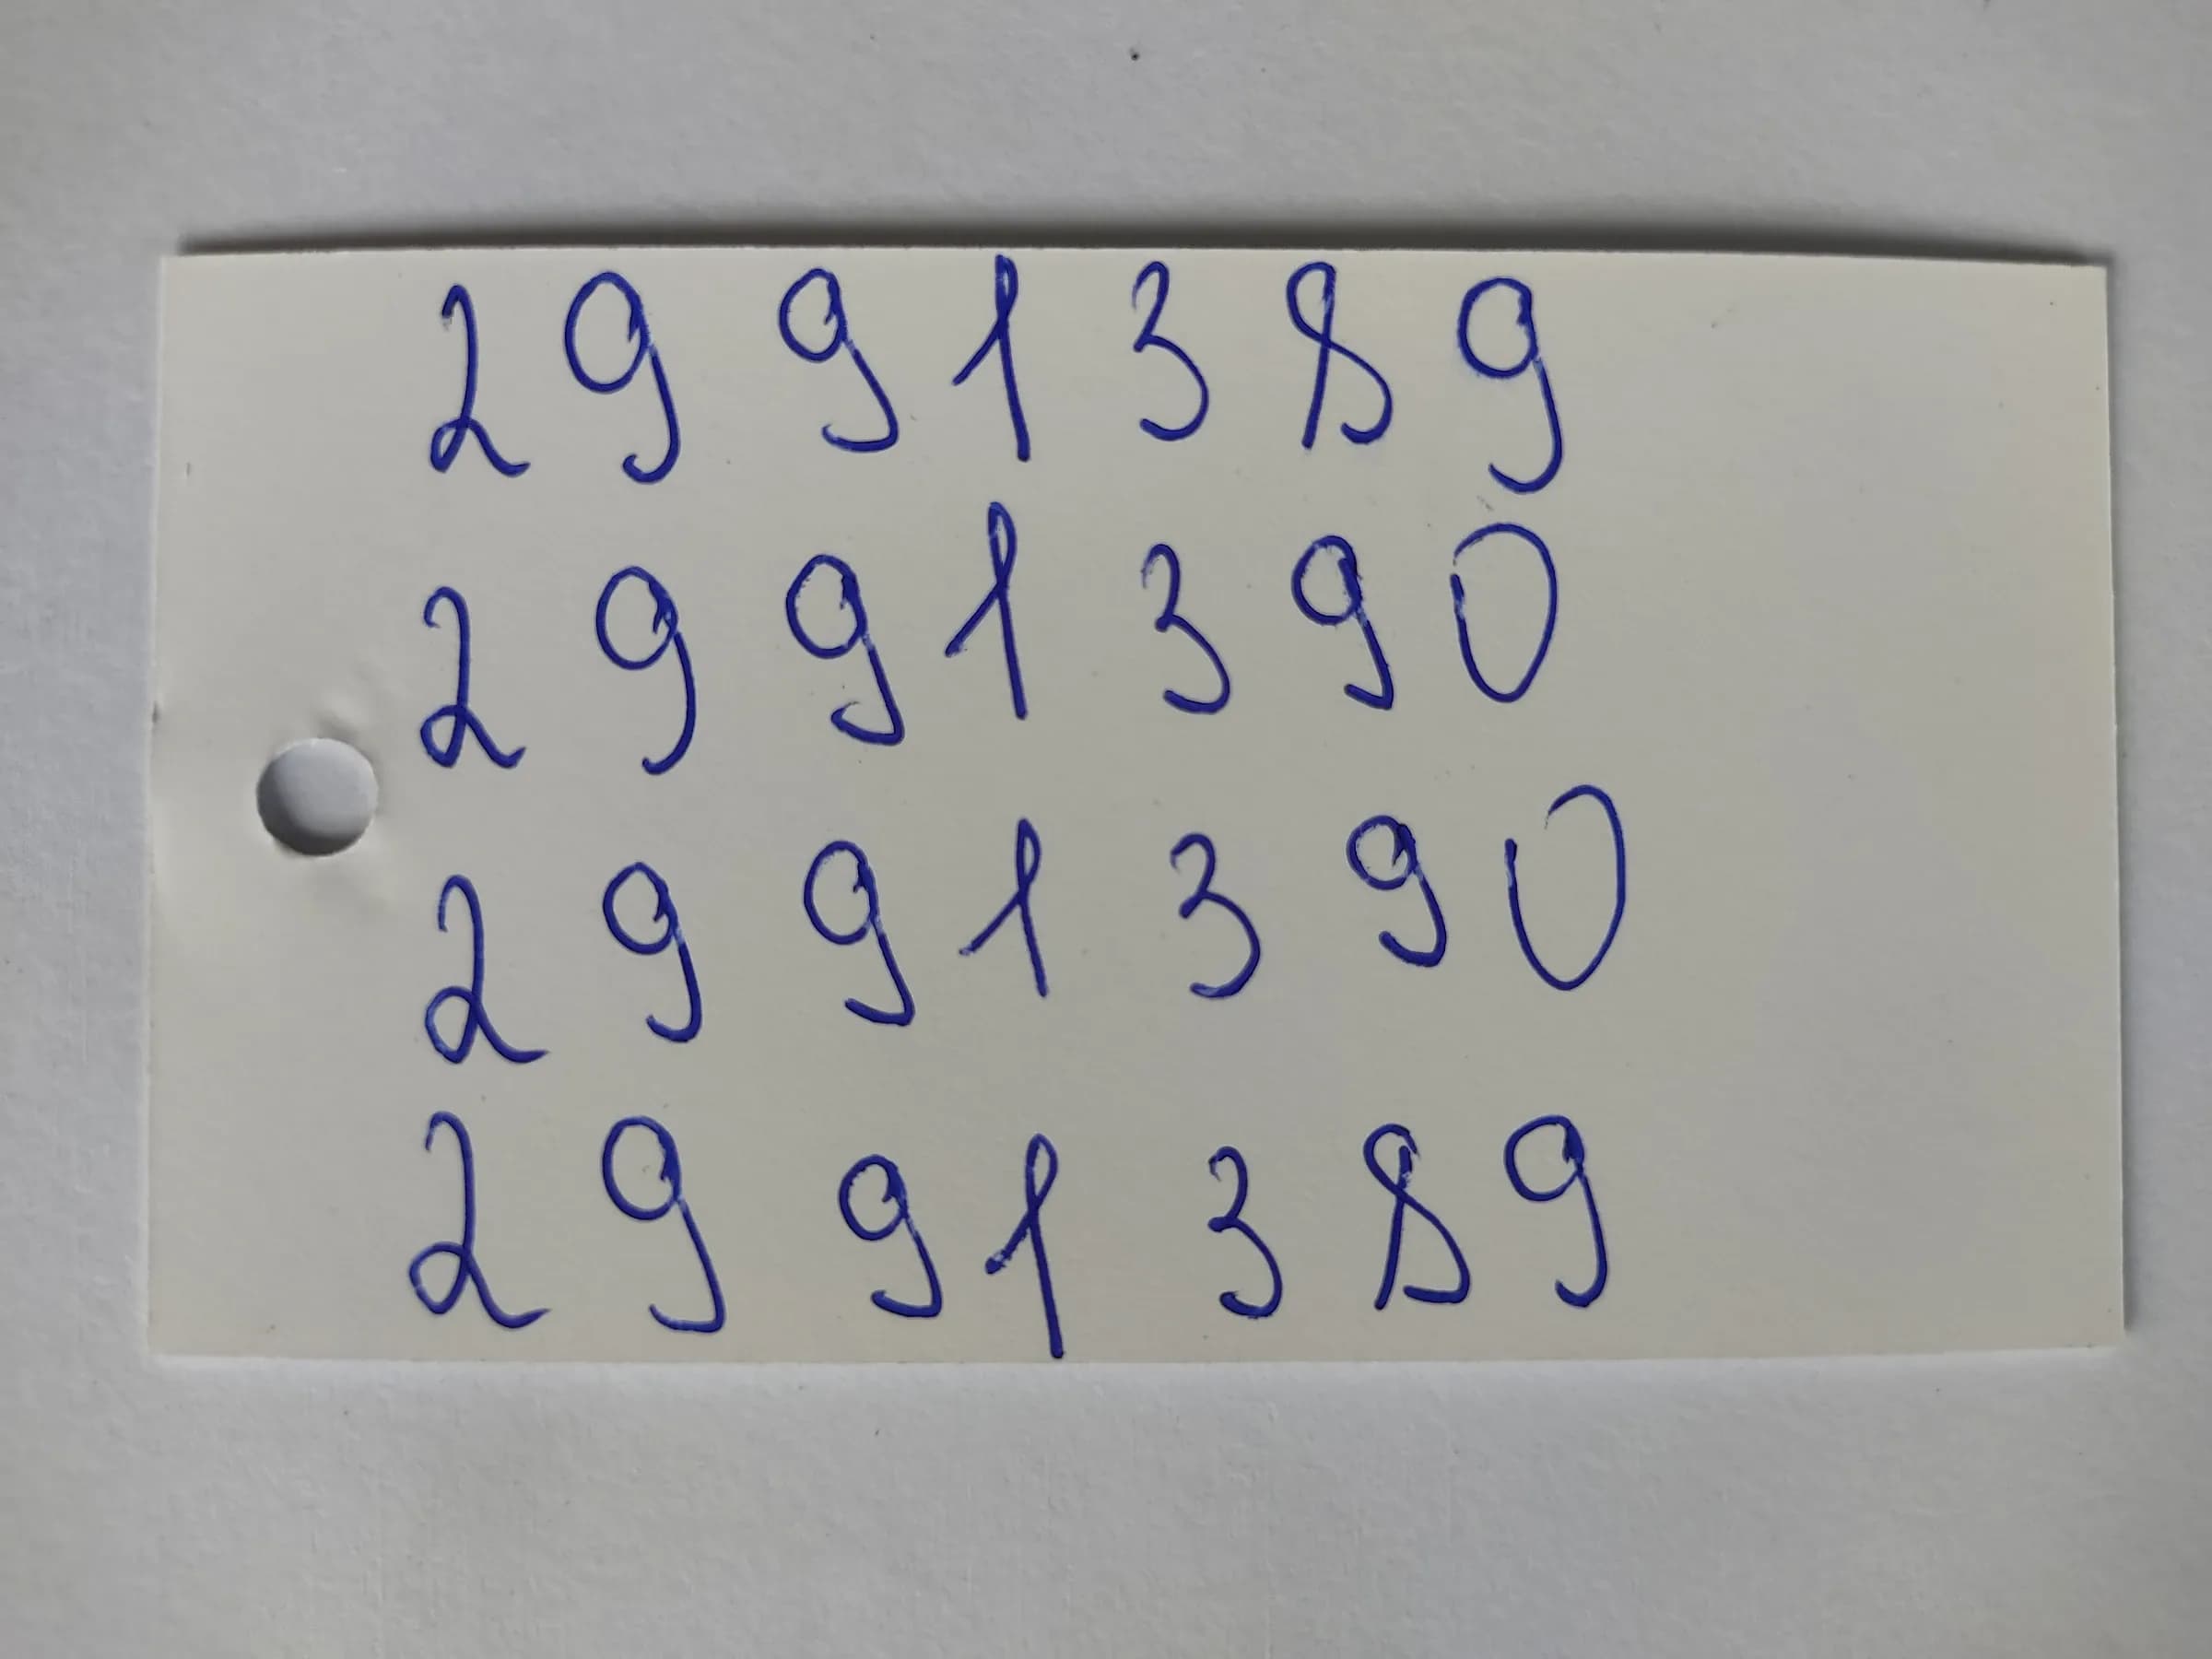 2991389
2991390
2991390
2991389